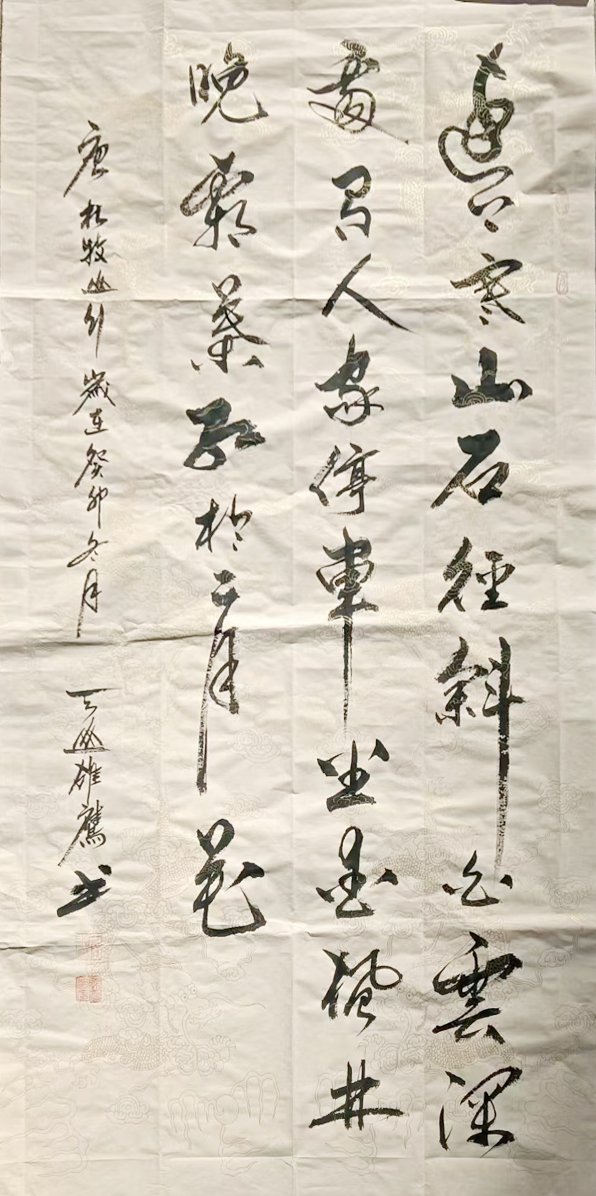 遠上寒山石徑斜白雲深
處有人家停車坐愛楓林
晚霜葉紅於二月花
唐杜牧山行歲在癸卯冬月 天山雄鷹书